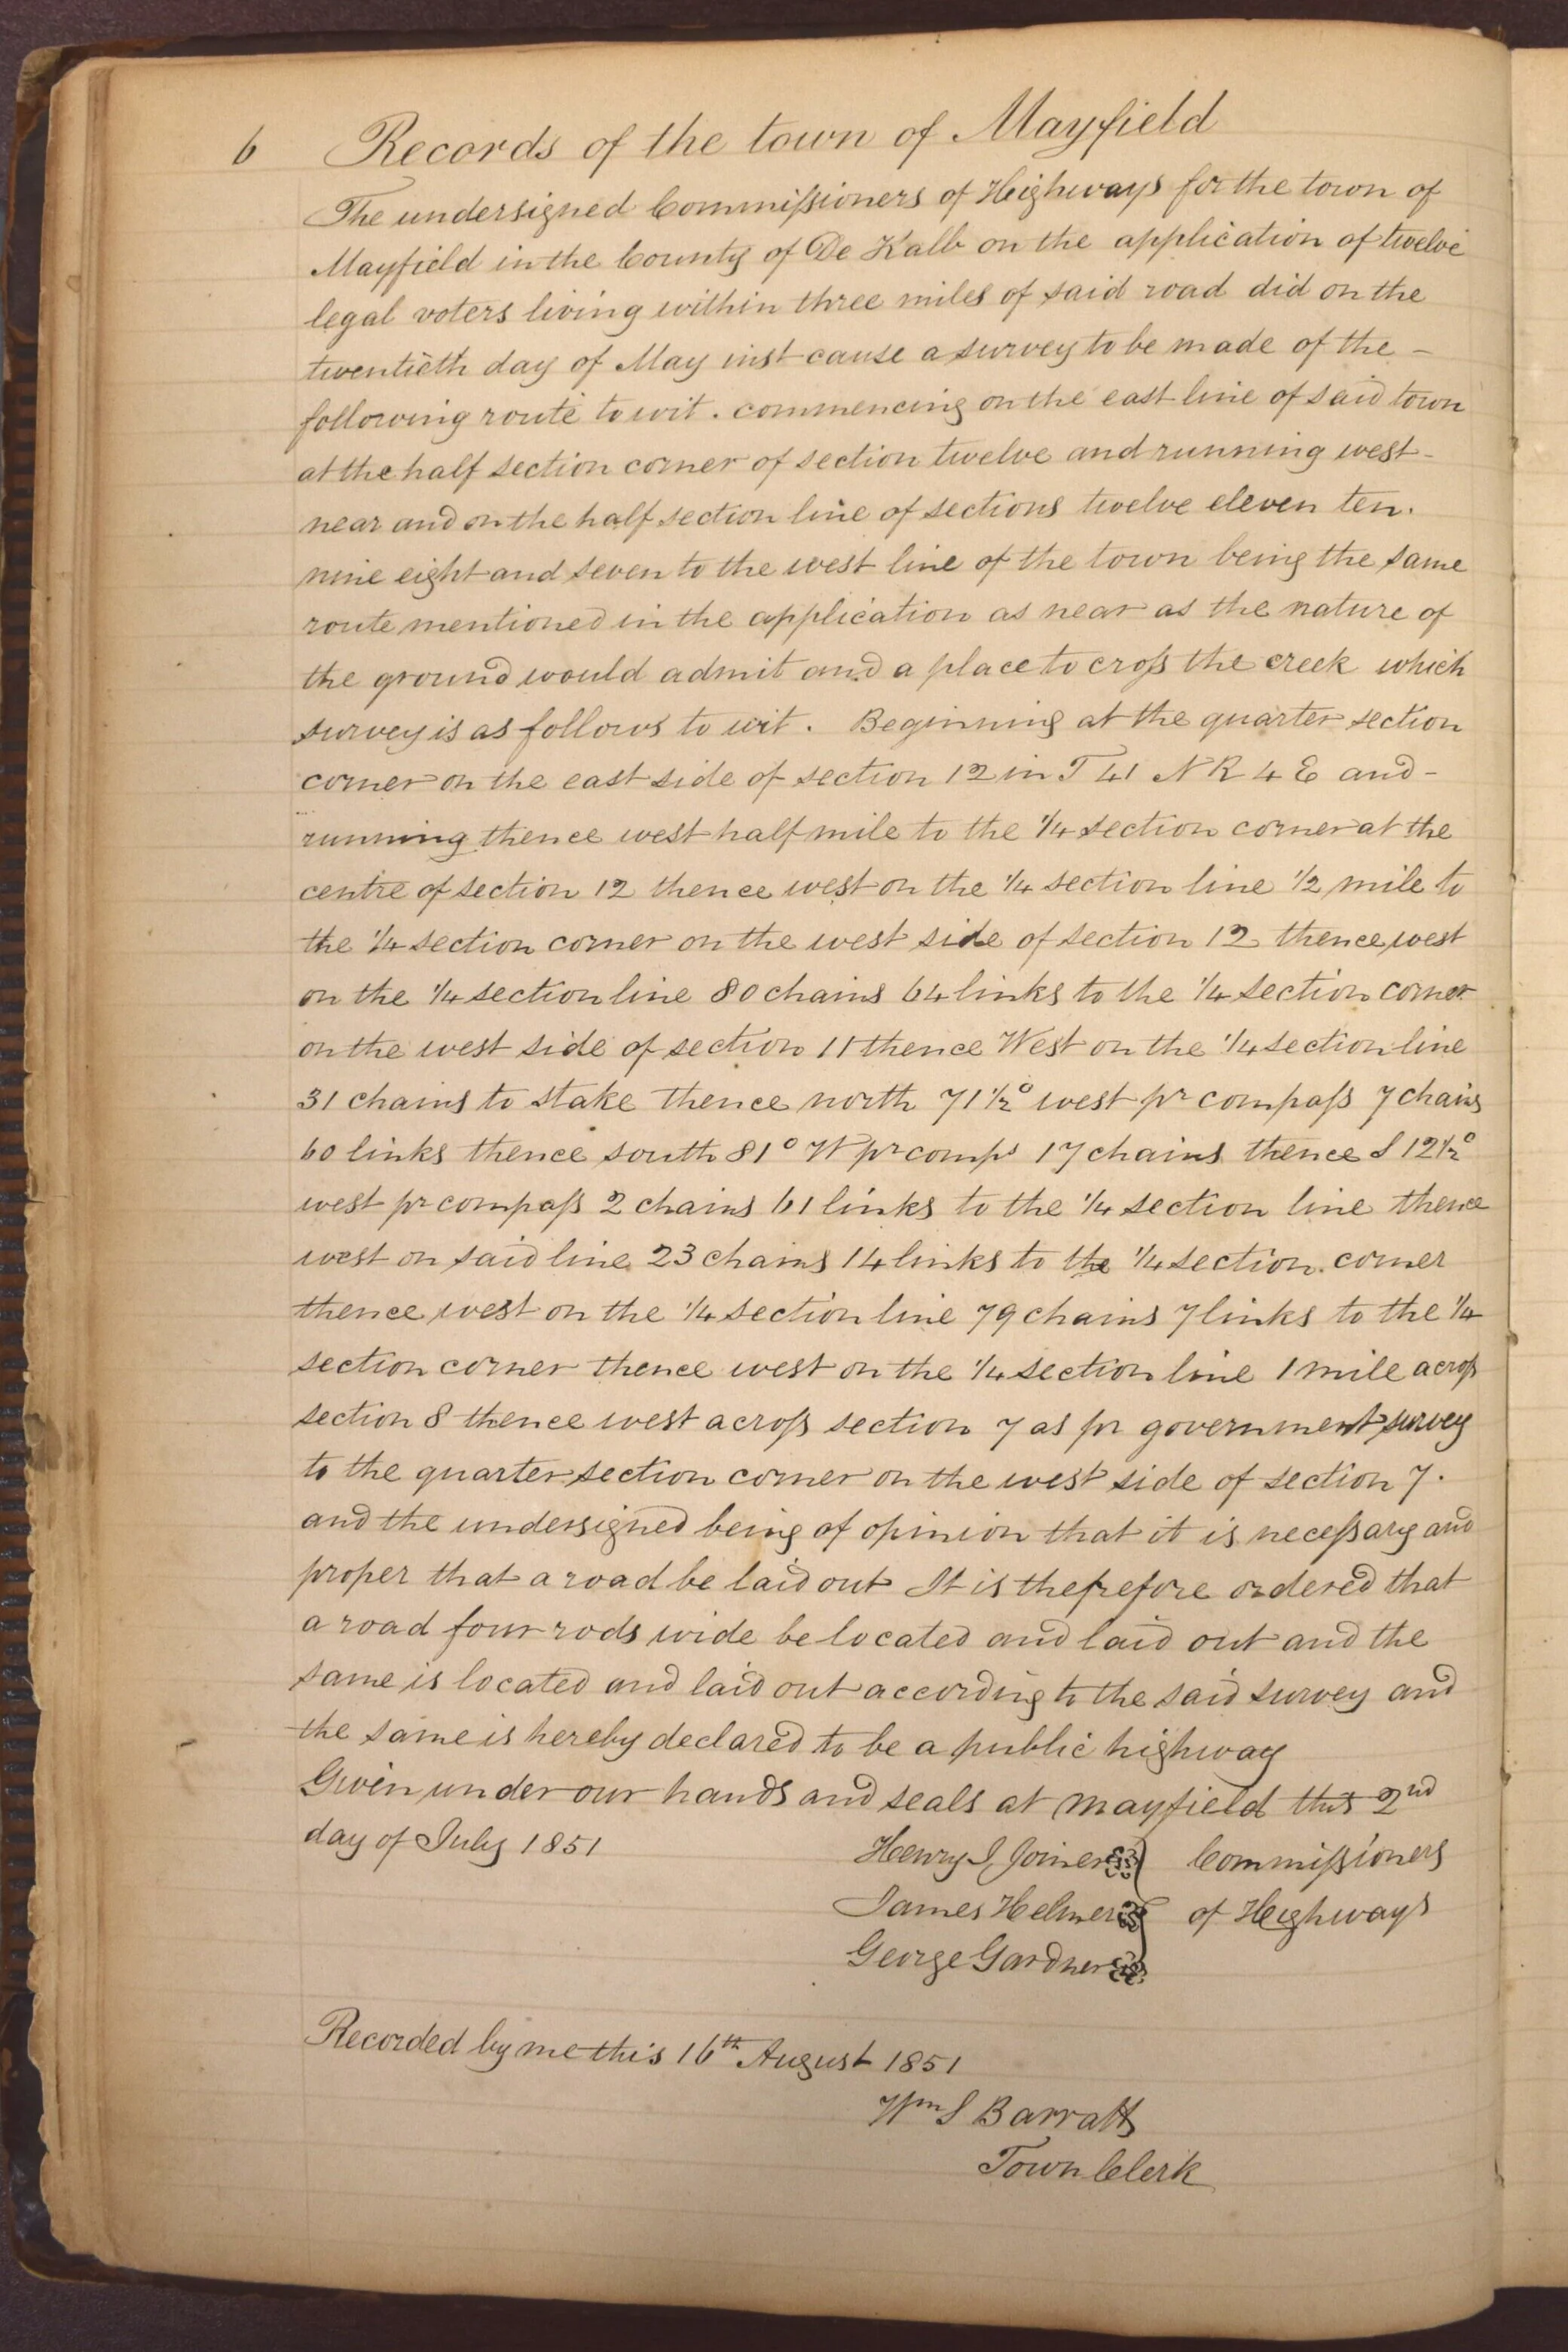 6 Records of the town of Mayfield
The undersigned Commissioners of Highways for the town of
Mayfield in the County of De Kalb on the application of twelve
legal voters living within three miles of said road did on the
twentieth day of May inst cause a survey to be made of the -
following route to wit . commencing on the east line of said town
at the half section corner of section twelve and running west -
near and on the half section line of sections twelve eleven ten .
nine eight and seven to the west line of the town being the same
route mentioned in the application as near as the nature of
the ground would admit and a place to cross the creek which
survey is as follows to wit . Beginning at the quarter section
corner on the east side of section 12 in T 41 N R 4 E and -
running thence west half mile to the 1/4 section corner at the
centre of section 12 thence west on the 1/4 section line 1/2 mile to
the 1/4 section corner on the west side of section 12 thence west
on the 1/4 section line 80 chains 64 links to the 1/4 section corner
on the west side of section 11 thence West on the 1/4 section line
31 chains to stake thence north 71 1/2° west pr compass 7 chains
60 links thence south 81° W pr comps 17 chains thence S 12 1/2°
west pr compass 2 chains 61 links to the 1/4 section line thence
west on said line 23 chains 14 links to the 1/4 section corner
thence west on the 1/4 section line 79 chains 7 links to the 1/4
section corner thence west on the 1/4 section line 1 mile across
section 8 thence west across section 7 as pr government survey
to the quarter section corner on the west side of section 7 .
and the undersigned being of opinion that it is necessary and
proper that a road be laid out It is therefore ordered that
a road four rods wide be located and laid out and the
same is located and laid out according to the said survey and
the same is hereby declared to be a public highway
Given under our hands and seals at Mayfield this 2nd
day of July 1851 Henry I, Joiner Commissioners
James Helmer of Heighways
George Gardner
Recorded by me this 16th August 1851
Wm S Barratt
Town Clerk